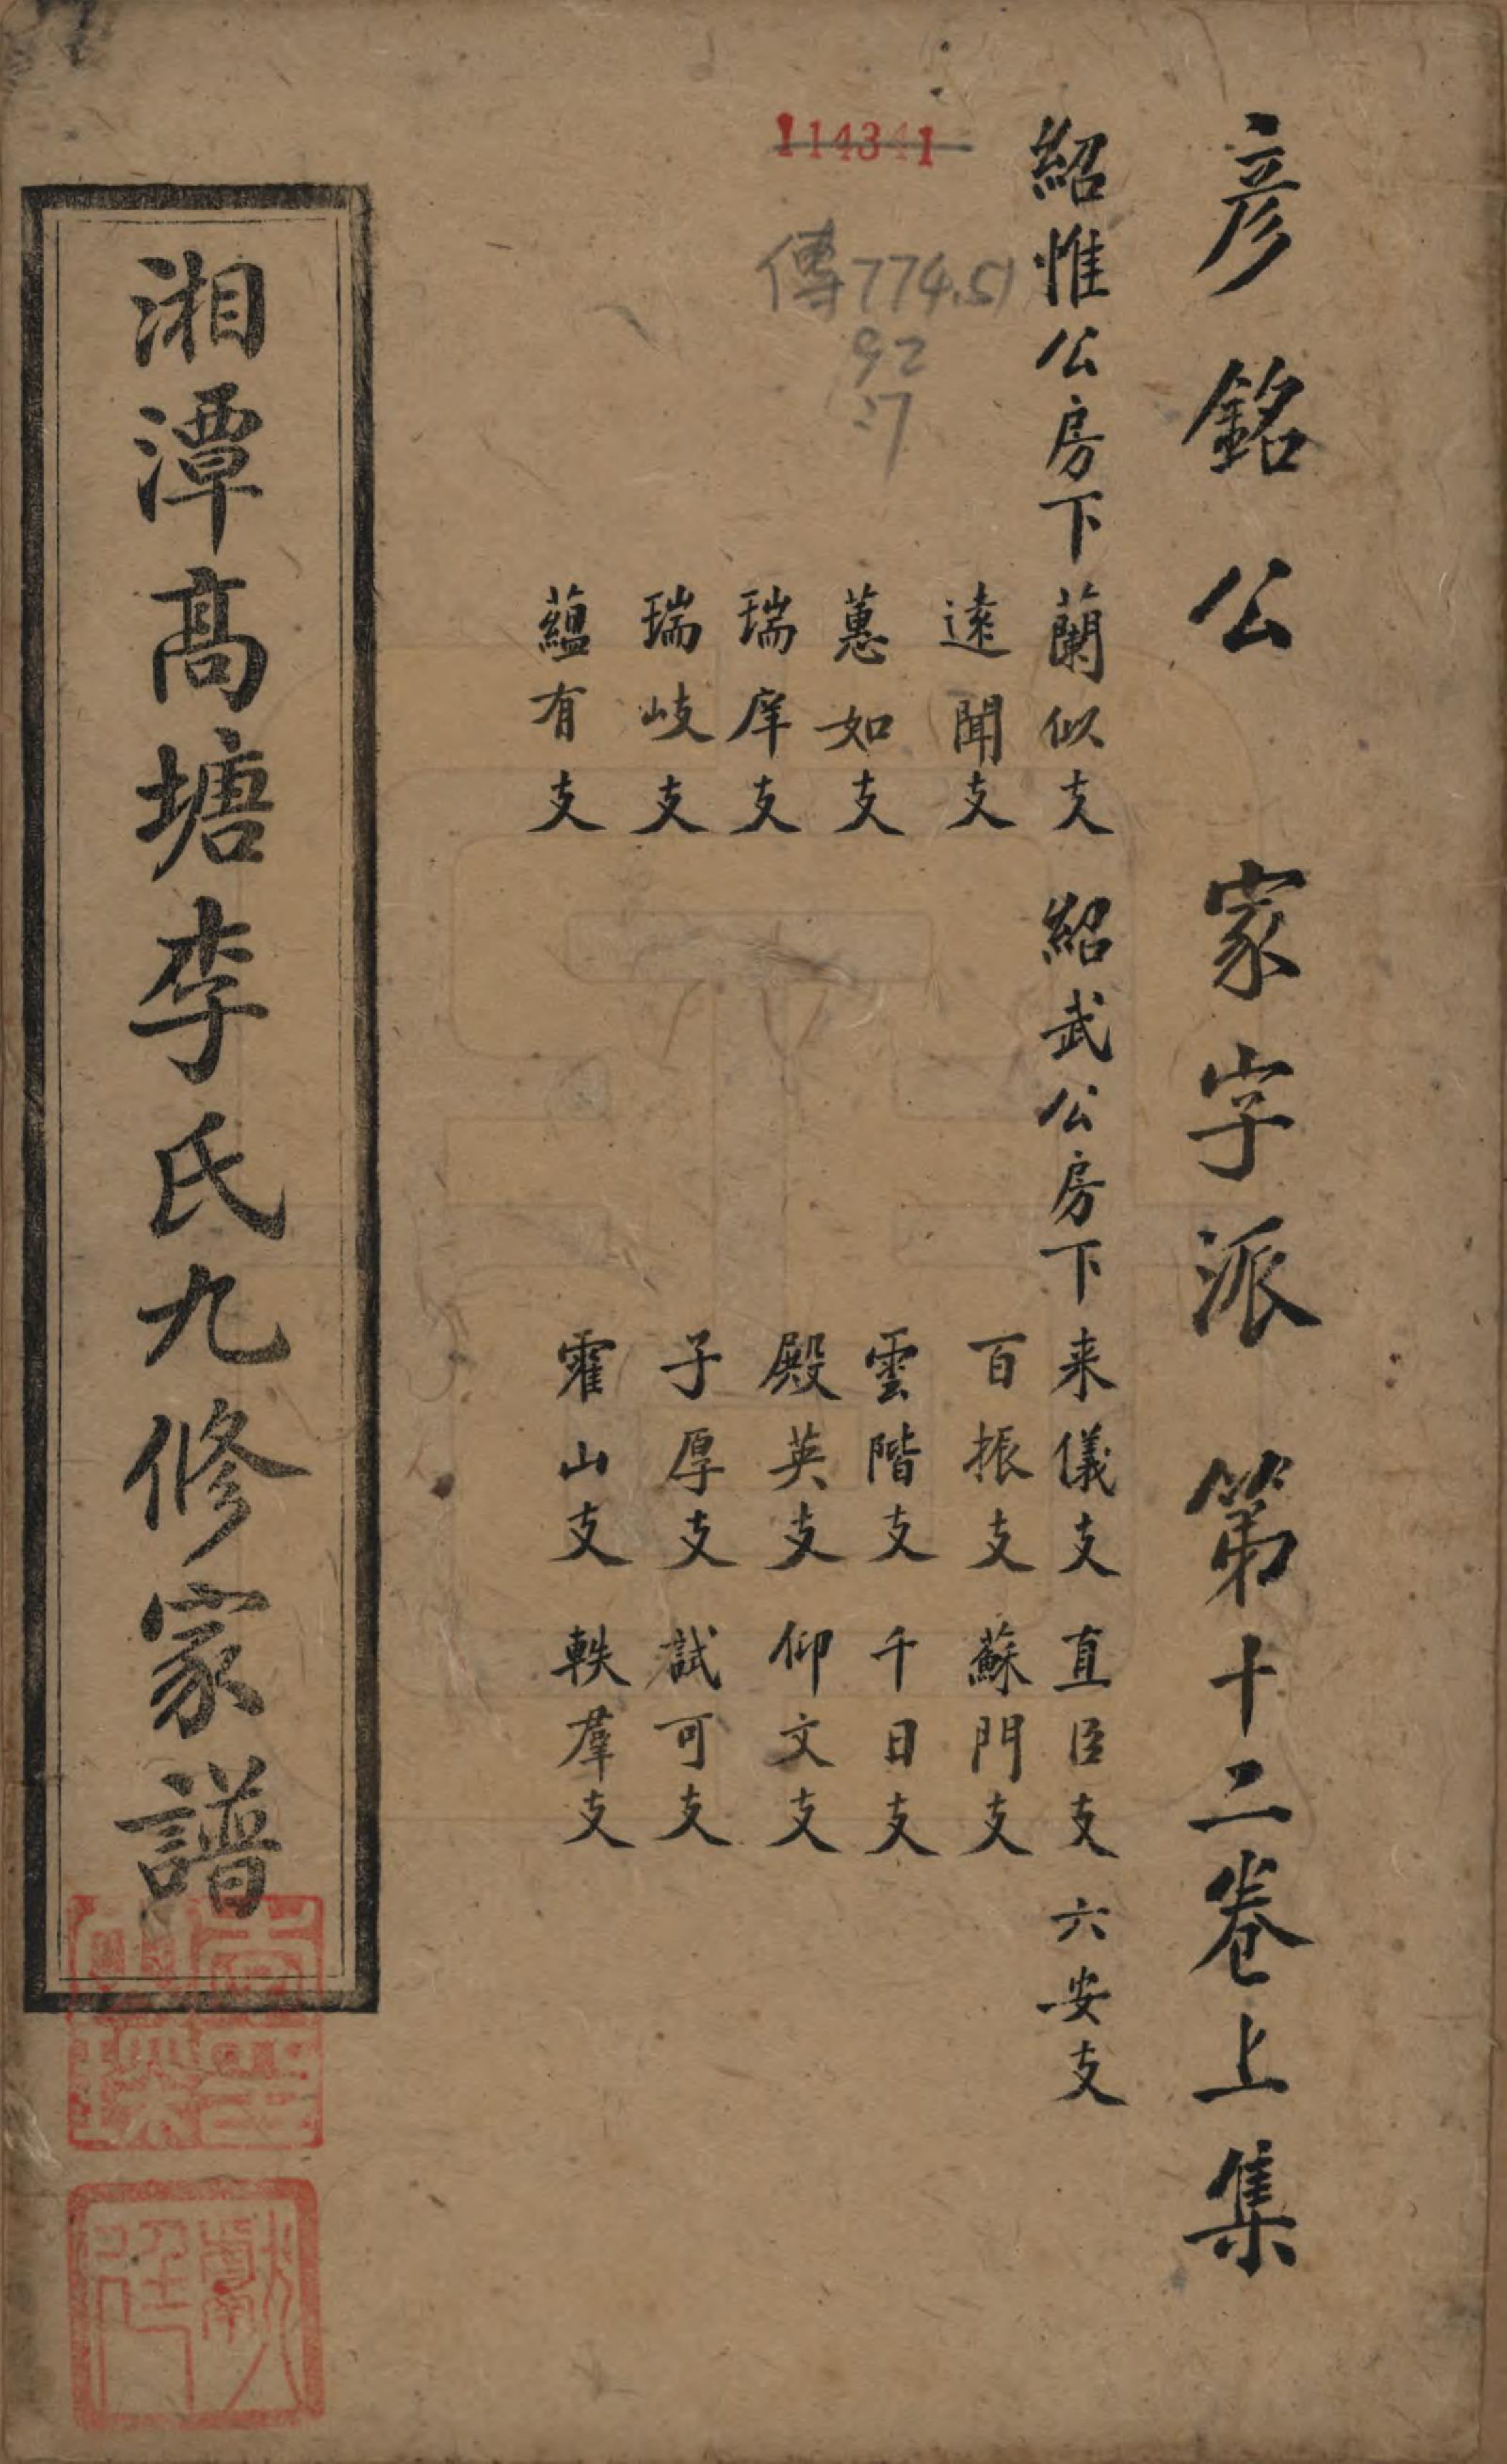 彥銘公 家字派 第十二卷上集
紹惟公房下
蘭似支
遠聞支
蕙如支
瑞庠支
瑞岐支
蘊有支
紹武公房下
来儀支 直臣支 六安支
百振支 蘇門支
雲階支 千日支
殿英支 仰文支
子厚支 試可支
霍山支 軼羣支
114341
傳774.51
92
:7
湘潭高塘李氏九修家譜